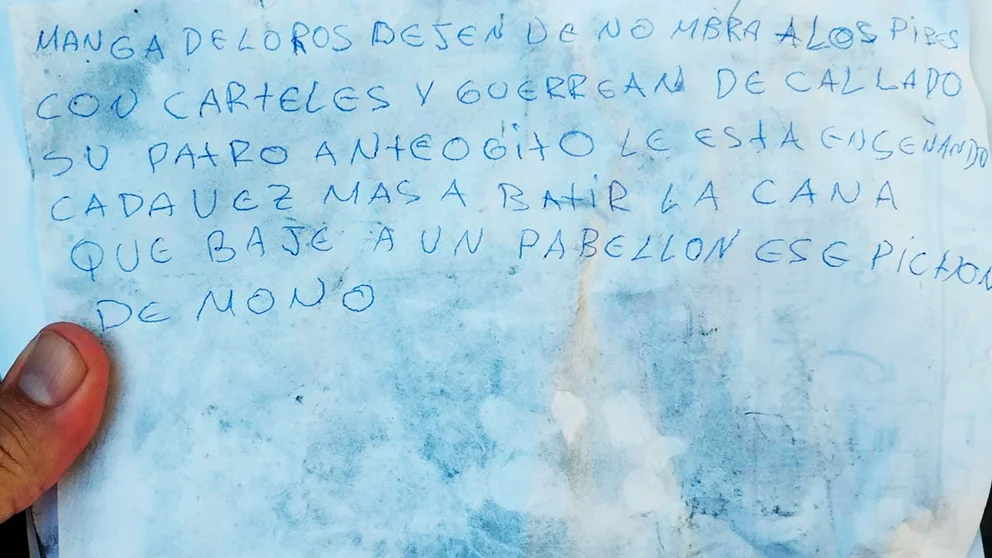 MANGA DE LOROS DEJEN DE NOMBRA A LOS PIBES
CON CARTELES Y GUERREAN DE CALLADO
SU PATRO ANTEOGITO LE ESTA ENSEÑANDO
CADA VEZ MAS A BATIR LA CANA
QUE BAJE A UN PABELLON ESE PICHON
DE MONO